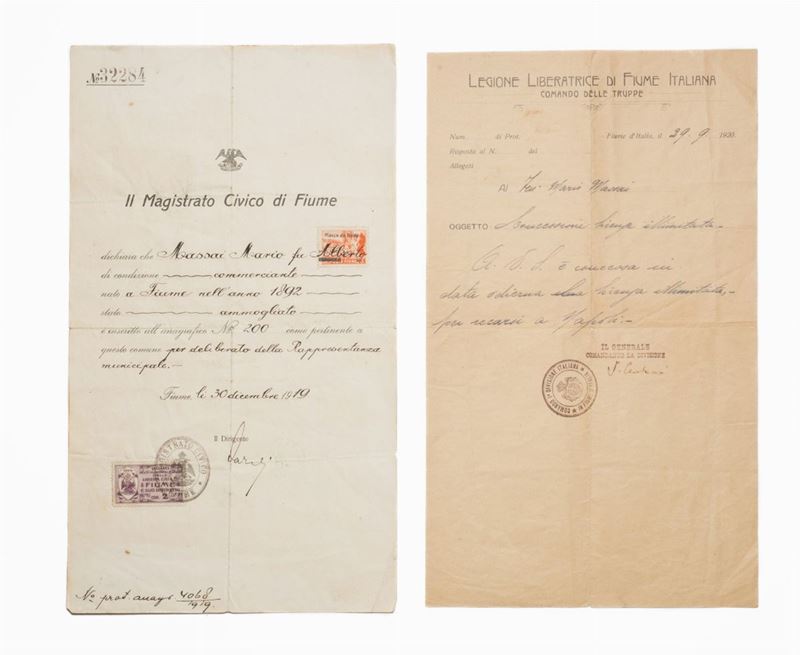 No 32284
Il Magistrato Civico di Fiume
dichiara che Massai Mario fu Alberto
di condizione commerciante
nato a Fiume nell'anno 1892
stato ammogliato
è inscritto all'anagrafico No 200 come pertinente a
questo comune per deliberato della Rappresentanza
municipale.-
Fiume, li 30 dicembre 1919
Il Dirigente
MAGISTRATO CIVICO
FIUME
2
No prot. anagr 4068
1919.
LEGIONE LIBERATRICE DI FIUME ITALIANA
COMANDO DELLE TRUPPE
Num. di Prot. Fiume d'Italia, il 29.9.1920.
Risposta al N. del
Allegati
Al Mario Massai
OGGETTO Concessione licenza illimitata.-
A. V. S. è concessa in
data odierna licenza illimitata,-
per recarsi a Napoli.-
IL GENERALE
COMANDANTE LA DIVISIONE
COMANDO DIVISIONE ITALIANA